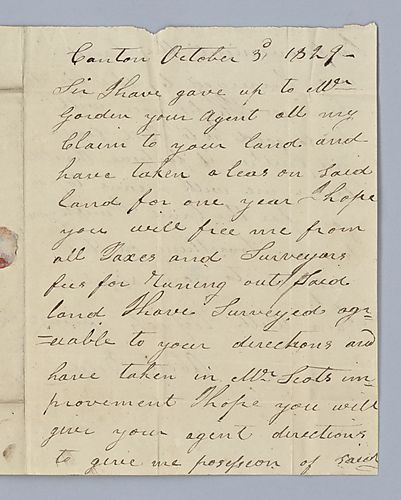 Canton October 3d 1829-
Sir I have gave up to Mr
Gorden your Agent all my
Claim to your land and
have taken a leas on Said
land for one year I hope
you will free me from
all Taxes and Surveyors
fees for runing out Said
land I have Surveyed agr-
=eable to your directions and
have taken in Mr Scots im-
provement I hope you will
give your agent directions
to give me possesion of said